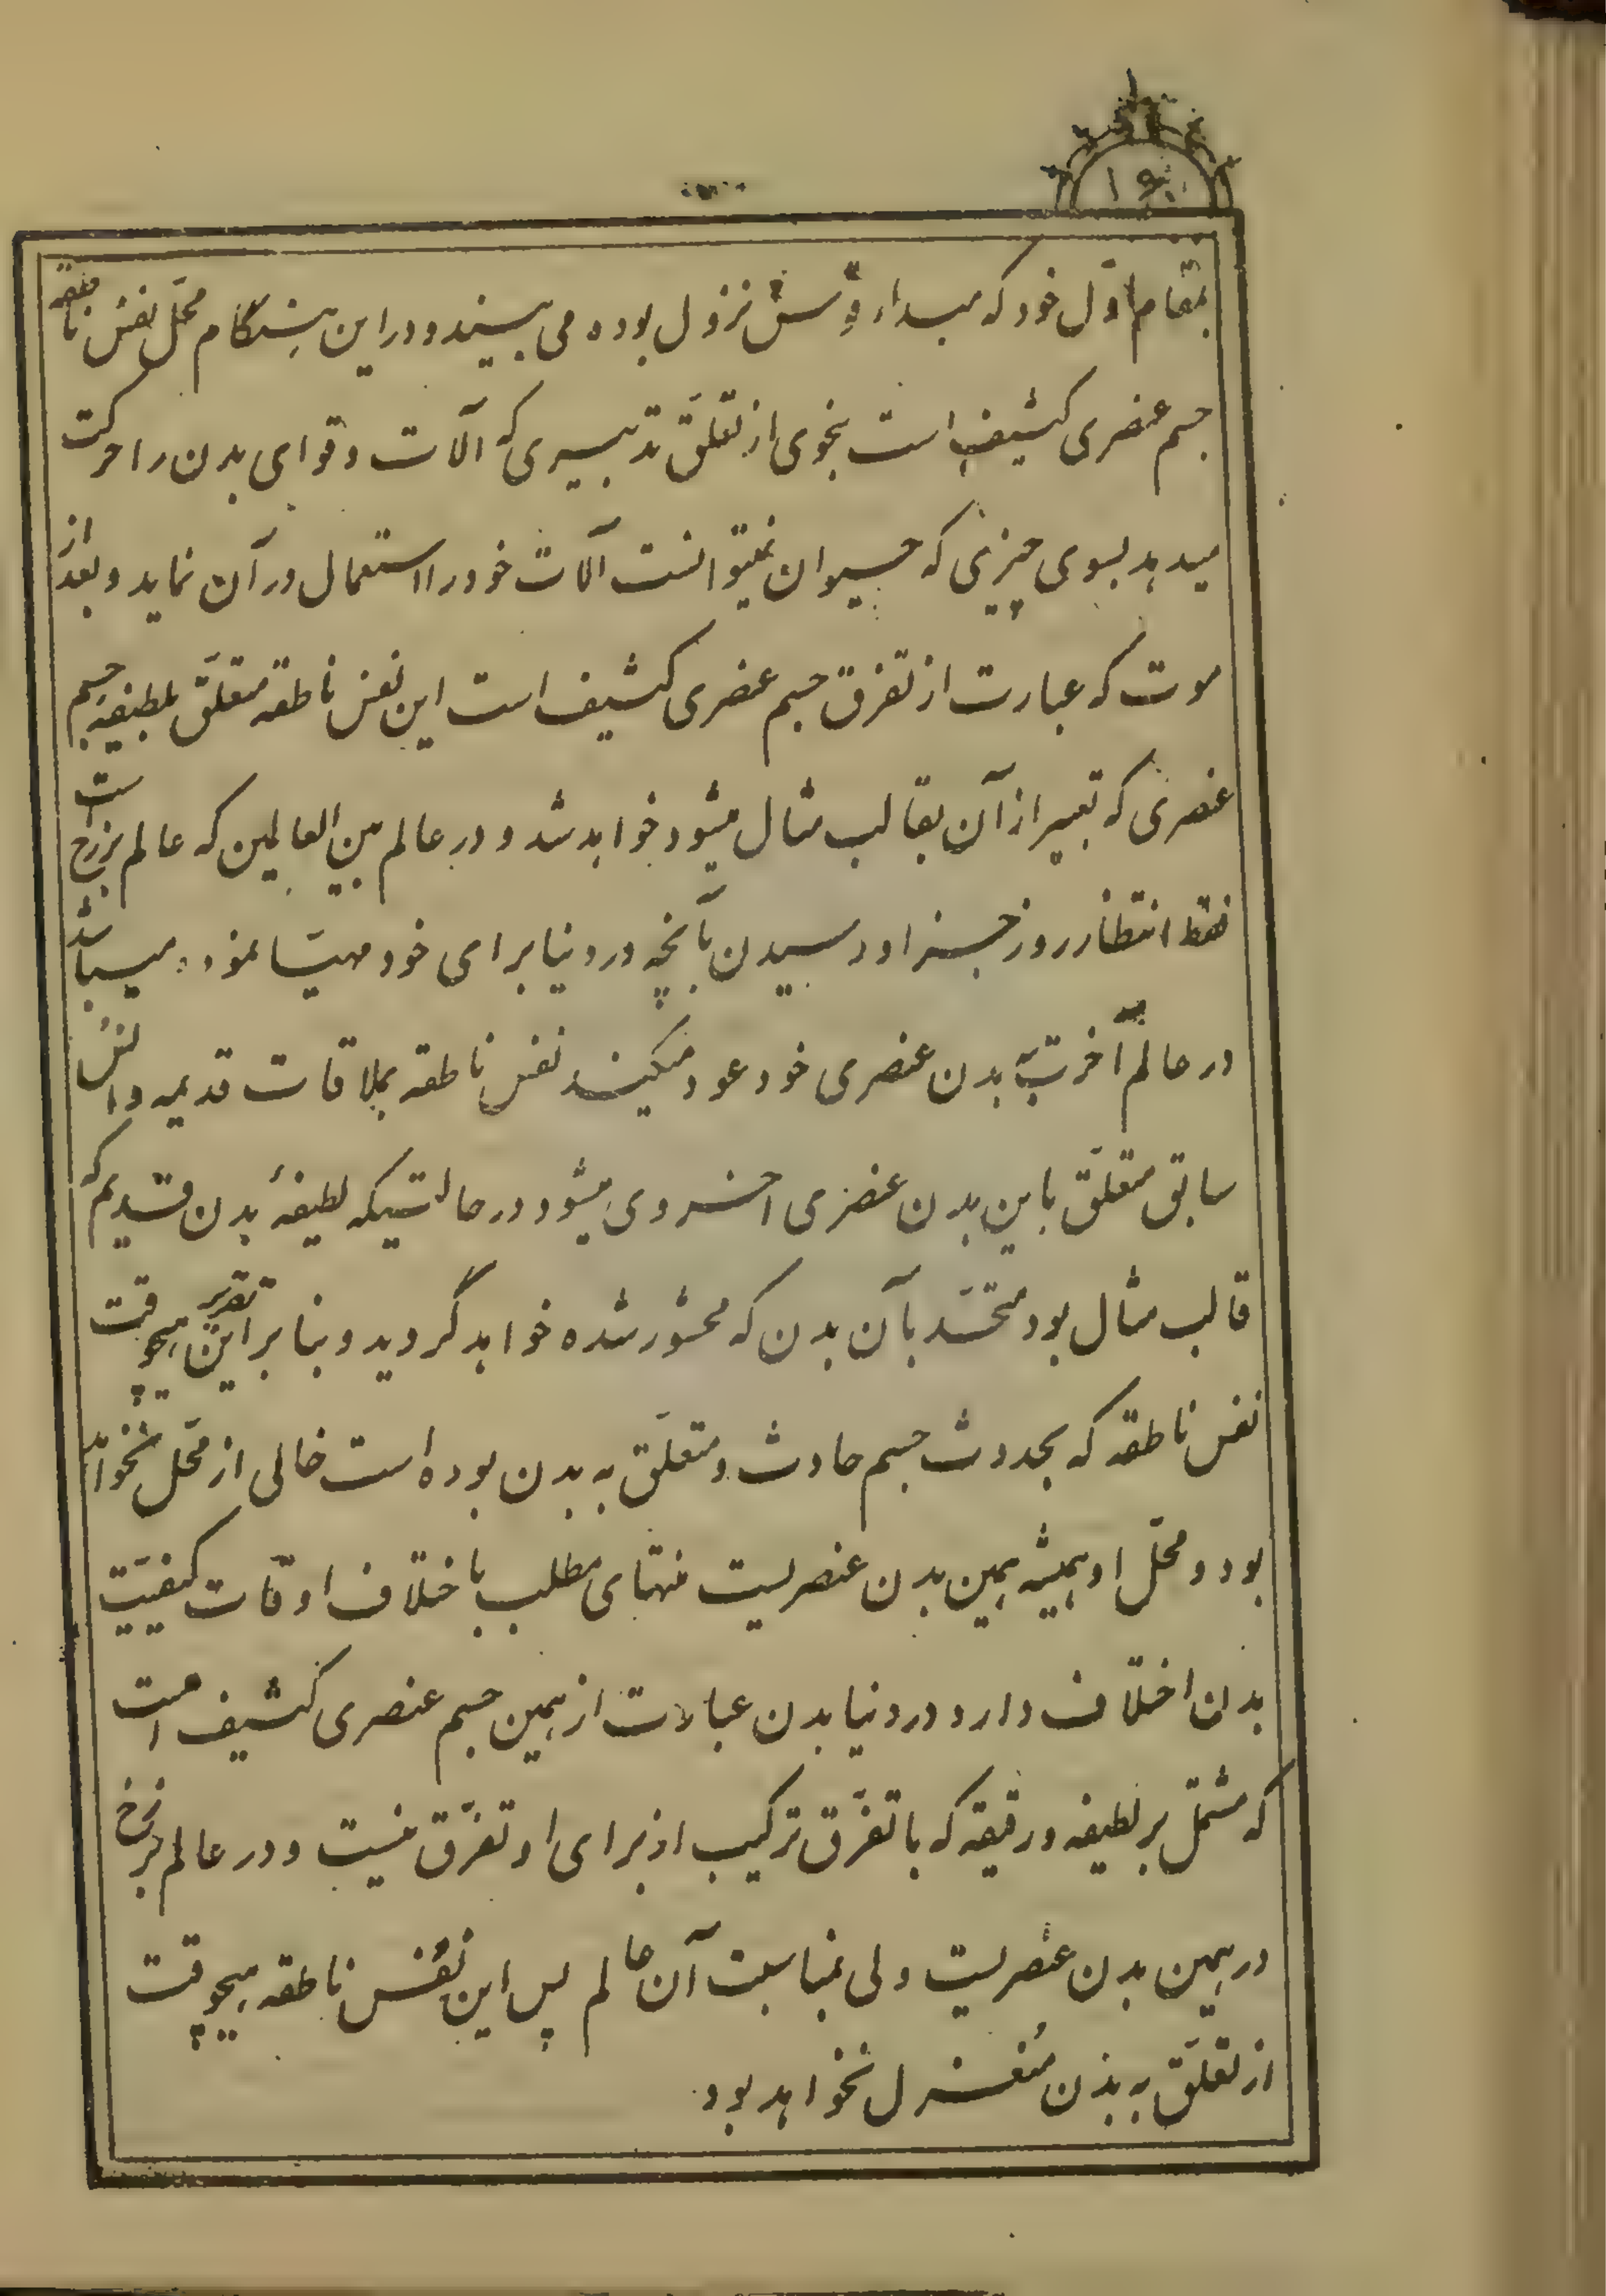 بمقام اوّل خود که مبداء قوس نزول بوده می بیند و در این هنگام محّل نفس ناطقه
جسم عنصری کثیف است بنحوی از تعلّق تدبیری که آلات و قوای بدن را حرکت
میدهد بسوی چیزی که حیوان نمیتوانست آلات خود را استعمال در آن نماید و بعد از
موت که عبارت از تفرق جسم عنصری کثیف است این نفس ناطقه متعلّق بلطیفه جسم
عنصری که تعبیر از آن بقالب مثال میشود خواهد شد و در عالم بین العالمین که عالم برزخ است
فقط انتظار روز جزا و رسیدن بآنچه در دنیا برای خود مهیّا نموده میباشد
در عالم آخرت بدن عنصری خود عود میکند نفس ناطقه بملاقات قدیمه و انس
سابق متعلّق باین بدن عنصری اخروی میشود در حالتیکه لطیفهٔ بدن قدیم که
قالب مثال بود متحّد بآن بدن که محشور شده خواهد گردید و بنا بر این تقریر هیچوقت
نفس ناطقه که بحدوث جسم حادث و متعلّق به بدن بوده است خالی از محّل نخواهد
بود و محّل او همیشه همین بدن عنصریست منتهای مطلب باختلاف اوقات کیفیّت
بدن اختلاف دارد در دنیا بدن عبارت از همین جسم عنصری کثیف است
که مشتمل بر لطیفه و رقیقه که با تفّرق ترکیب از برای او تفّرق نیست و در عالم برزخ
در همین بدن عنصریست ولی بمناسبت آن عالم پس این نفس ناطقه هیچوقت
از تعلّق به بدن منعزل نخواهد بود